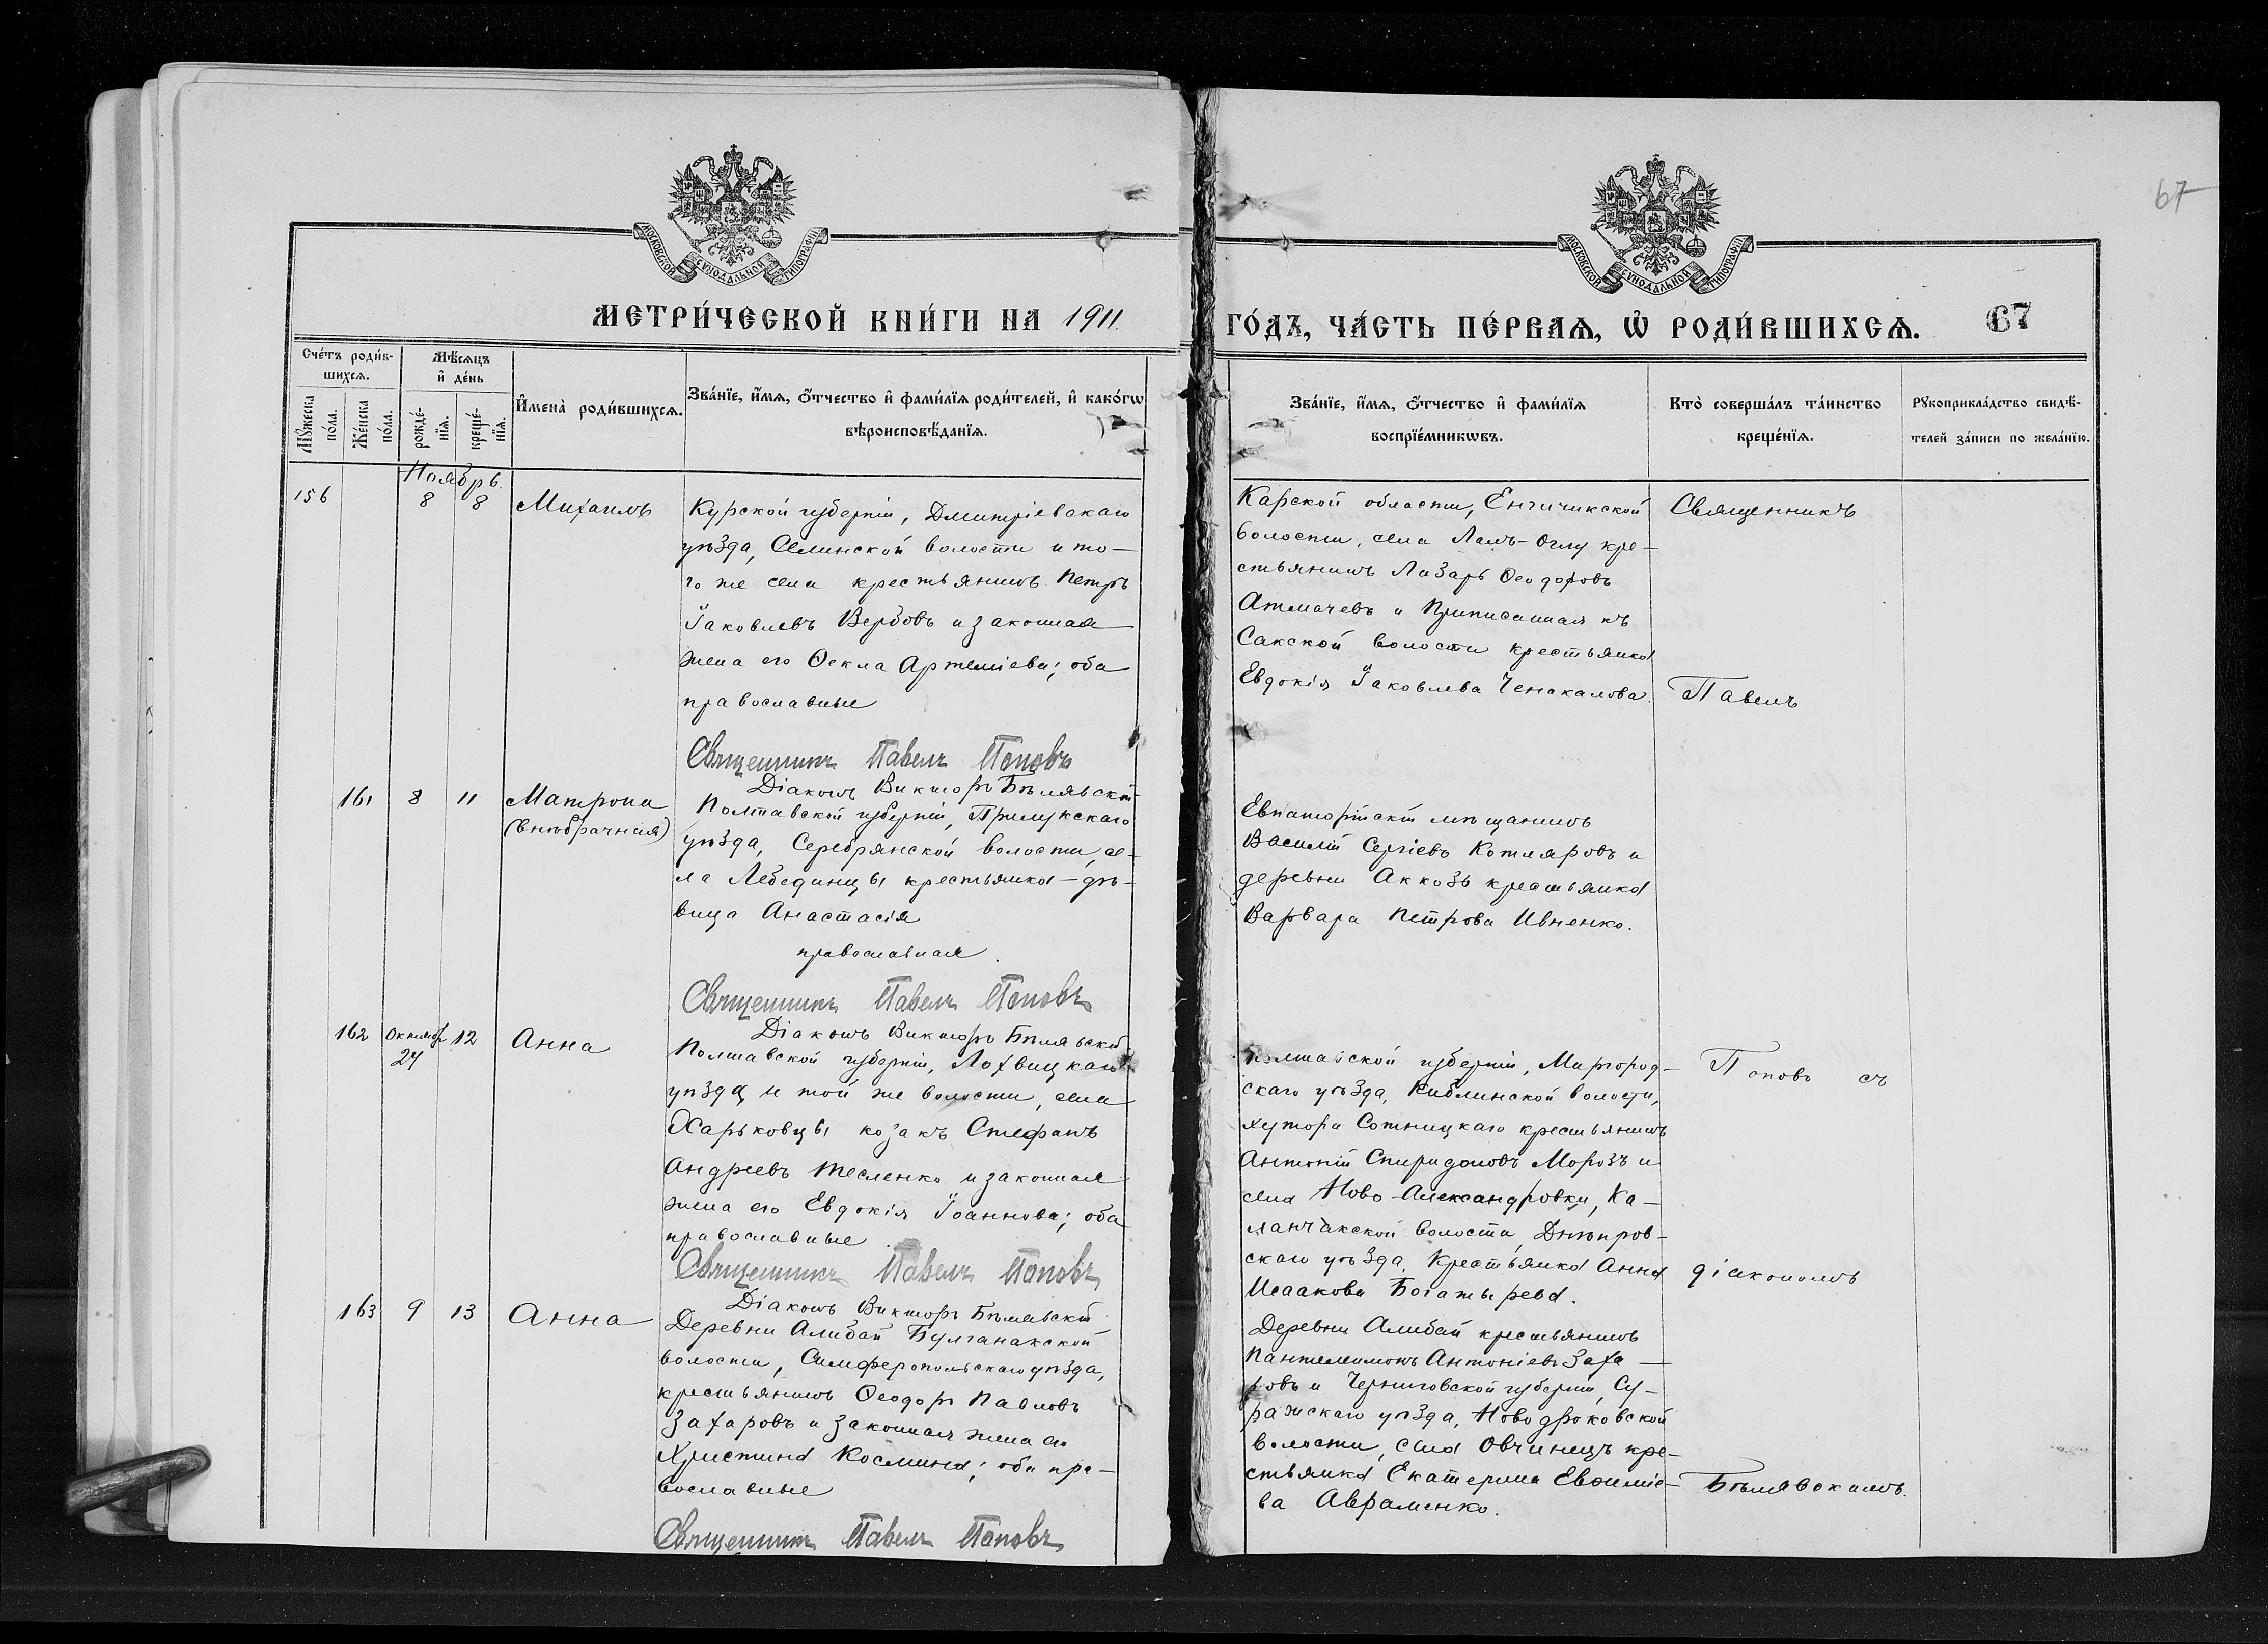 67
МОСКОВСКОЙ СѴНОДАЛЬНОЙ ТИПОГРАФІИ
МОСКОВСКОЙ СѴНОДАЛЬНОЙ ТИПОГРАФІИ
МЕТРИ́ЧЕСКОЙ КНИ́ГИ НА 1911 ГО́ДЪ, ЧА́СТЬ ПЕ́РВАЯ, Ѡ҆ РОДИ́ВШИХСЯ. 67
Сче́тъ роди́в-
шихсѧ.
Мѣ́сѧцъ
и҆ де́нь
Мꙋ́жеска
по́ла.
Же́нска
по́ла.
рожде́-
нїѧ.
креще́-
нїѧ.
И҆мена̀ роди́вшихсѧ.
Зва́нїе, и҆́мѧ, ѻ҆́тчество и҆ фами́лїѧ роди́телей, и҆ како́гѡ
вѣроисповѣ́данїѧ.
Зва́нїе, и҆́мѧ, ѻ҆́тчество и҆ фами́лїѧ
воспрїе́мникѡвъ.
Кто̀ соверша́лъ та́инство
креще́нїѧ.
Рꙋкоприкла́дство свидѣ́-
телей за́писи по жела́нїю.
Ноябрь
156 8 8 Михаилъ
Курской губерніи, Дмитріевскаго
уѣзда, Селинской волости и то-
го же села крестьянинъ Петръ
Іаковлевъ Вербовъ и законная
жена его Ѳекла Артеміева; оба
православные
Священникъ Павелъ Поповъ
Діаконъ Викторъ Бѣлявскій
Карской области,
волости, села Ламъ-Оглу кре-
стьянинъ Лазарь Ѳеодоровъ
Атмачевъ и приписанная къ
Сакской волости крестьянка
Евдокія Іаковлева Ченакалова.
Священникъ
Павелъ
161 8 11 Матрона
(внѣбрачная)
Полтавской губерніи, Прилукскаго
уѣзда, Серебрянской волости, се-
ла Лебединцы крестьянка-дѣ-
вица Анастасія
православная.
Священникъ Павелъ Поповъ
Діаконъ Викторъ Бѣлявскій
Евпаторійскій мѣщанинъ
Василій Сергіевъ Котляровъ и
деревни Аккозъ крестьянка
Варвара Петрова Ивненко.
162 Октябр 24 12 Анна
Полтавской губерніи, Лохвицкаго
уѣзда и той же волости, села
Харьковцы козакъ Стефанъ
Андреевъ Тесленко и законная
жена его Евдокія Іоаннова; оба
православные
Священникъ Павелъ Поповъ
Діаконъ Викторъ Бѣлявскій
Полтавской губерніи, Миргород-
скаго уѣзда, Кибинской волости,
хутора Сотницкаго крестьянинъ
Антоній Спиридоновъ Морозъ и
села Ново-Александровки, Ка-
ланчакской волости, Днѣпров-
скаго уѣзда, крестьянка Анна
Исаакова Богатырева.
Поповъ съ
діакономъ
163 9 13 Анна
Деревни Алибай Булганакской
волости, Симферопольскаго уѣзда,
крестьянинъ Ѳеодоръ Павловъ
Захаровъ и законная жена его
Христина Космина; оба пра-
вославные
Священникъ Павелъ Поповъ
Деревни Алибай крестьянинъ
Пантелеимонъ Антоніевъ Заха-
ровъ и Черниговской губерніи, Су-
ражскаго уѣзда, Новодроковской
волости, села Овчинецъ кре-
стьянка Екатерина Евѳиміе-
ва Авраменко.
Бѣлявскимъ.